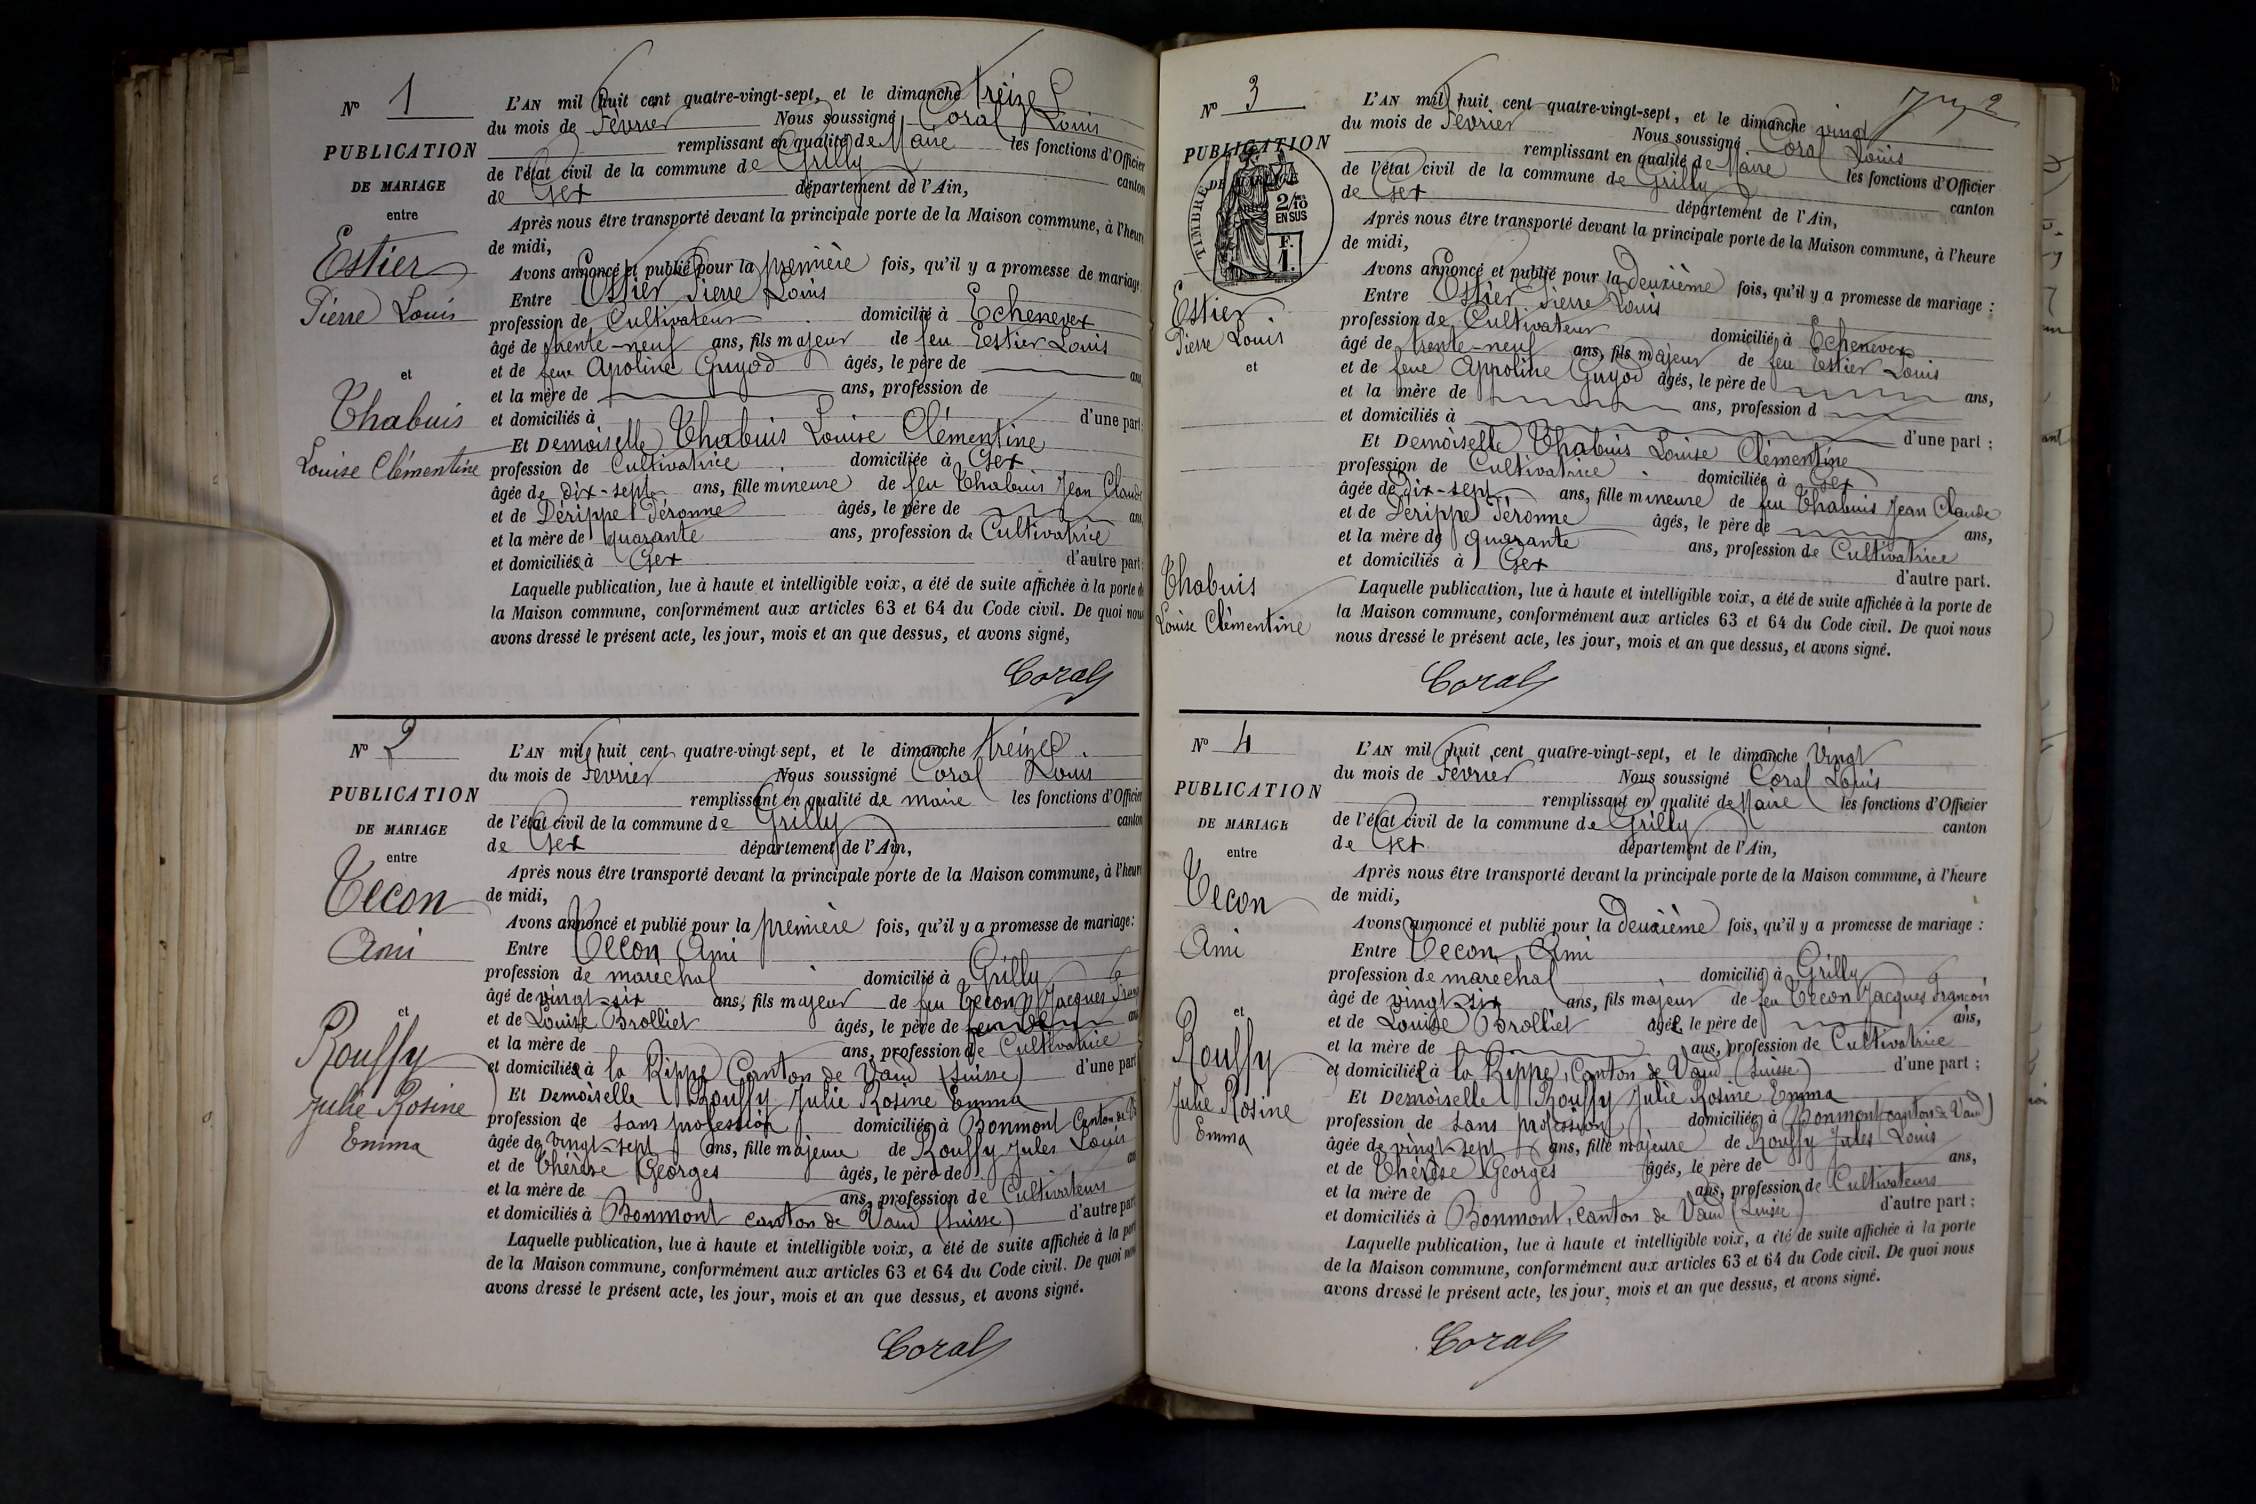 N° 1
PUBLICATION
DE MARIAGE
entre
Estier
Pierre Louis
et
Chabuis
Louise Clémentine
L'AN mil huit cent quatre-vingt-sept, et le dimanche treize
du mois de Février Nous soussigné Coral Louis
remplissant en qualité de Maire les fonctions d'Officier
de l'état civil de la commune de Grilly canton
de Gex département de l'Ain,
Après nous être transporté devant la principale porte de la Maison commune, à l'heure
de midi,
Avons annoncé et publié pour la première fois, qu'il y a promesse de mariage
Entre Estier Pierre Louis
profession de Cultivateur domicilié à Echenevex
âgé de trente-neuf ans, fils majeur de feu Estier Louis
et de feue Apoline Guyod âgés, le père de ans
et la mère de ans, profession de
et domiciliés à d'une part;
Et Demoiselle Chabuis Louise Clémentine
profession de Cultivatrice domiciliée à Gex
âgée de dix-sept ans, fille mineure de feu Chabuis Jean Claude
et de Dérippe Péronne âgés, le père de ans,
et la mère de quarante ans, profession de Cultivatrice
et domiciliés à Gex d'autre part;
Laquelle publication, lue à haute et intelligible voix, a été de suite affichée à la porte de
la Maison commune, conformément aux articles 63 et 64 du Code civil. De quoi nous
avons dressé le présent acte, les jour, mois et an que dessus, et avons signé,
Coral
N° 2
PUBLICATION
DE MARIAGE
entre
Tecon
Ami
et
Rouffy
Julie Rosine
Emma
L'AN mil huit cent quatre-vingt-sept, et le dimanche treize
du mois de Février Nous soussigné Coral Louis
remplissant en qualité de maire les fonctions d'Officier
de l'état civil de la commune de Grilly canton
de Gex département de l'Ain,
Après nous être transporté devant la principale porte de la Maison commune, à l'heure
de midi,
Avons annoncé et publié pour la première fois, qu'il y a promesse de mariage:
Entre Tecon Ami
profession de maréchal domicilié à Grilly
âgé de vingt-six ans, fils majeur de feu Tecon Jacques
et de Louise Brolliet âgés, le père de
et la mère de ans, profession de Cultivatrice
et domiciliés à la Rippe Canton de Vaud (Suisse) d'une part
Et Demoiselle Rouffy Julie Rosine Emma
profession de sans profession domiciliée à Bonmont Canton de
âgée de vingt-sept ans, fille majeure de Rouffy Jules Louis
et de Thérèse Georges âgés, le père de
et la mère de ans, profession de Cultivateurs
et domiciliés à Bonmont canton de Vaud (Suisse) d'autre part
Laquelle publication, lue à haute et intelligible voix, a été de suite affichée à la porte
de la Maison commune, conformément aux articles 63 et 64 du Code civil. De quoi nous
avons dressé le présent acte, les jour, mois et an que dessus, et avons signé.
Coral
2
N° 3
PUBLICATION
DE MARIAGE
TIMBRE
2/10
EN SUS
F.
1.
Estier
Pierre Louis
et
Chabuis
Louise Clémentine
L'AN mil huit cent quatre-vingt-sept, et le dimanche vingt
du mois de Février Nous soussigné Coral Louis
remplissant en qualité de Maire les fonctions d'Officier
de l'état civil de la commune de Grilly canton
de Gex département de l'Ain,
Après nous être transporté devant la principale porte de la Maison commune, à l'heure
de midi,
Avons annoncé et publié pour la deuxième fois, qu'il y a promesse de mariage :
Entre Estier Pierre Louis
profession de Cultivateur domicilié à Echenevex
âgé de trente-neuf ans, fils majeur de feu Estier Louis
et de feue Appoline Guyod âgés, le père de ans,
et la mère de ans, profession d
et domiciliés à d'une part ;
Et Demoiselle Chabuis Louise Clémentine
profession de Cultivatrice domiciliée à Gex
âgée de dix-sept ans, fille mineure de feu Chabuis Jean Claude
et de Dérippe Péronne âgés, le père de ans,
et la mère de quarante ans, profession de Cultivatrice
et domiciliés à Gex d'autre part.
Laquelle publication, lue à haute et intelligible voix, a été de suite affichée à la porte de
la Maison commune, conformément aux articles 63 et 64 du Code civil. De quoi nous
nous dressé le présent acte, les jour, mois et an que dessus, et avons signé.
Coral
N° 4
PUBLICATION
DE MARIAGE
entre
Tecon
Ami
et
Rouffy
Julie Rosine
Emma
L'AN mil huit cent quatre-vingt-sept, et le dimanche Vingt
du mois de Février Nous soussigné Coral Louis
remplissant en qualité de Maire les fonctions d'Officier
de l'état civil de la commune de Grilly canton
de Gex département de l'Ain,
Après nous être transporté devant la principale porte de la Maison commune, à l'heure
de midi,
Avons annoncé et publié pour la deuxième fois, qu'il y a promesse de mariage :
Entre Tecon Ami
profession de maréchal domicilié à Grilly
âgé de vingt-six ans, fils majeur de feu Tecon Jacques François
et de Louise Brolliet âgés, le père de ans,
et la mère de ans, profession de Cultivatrice
et domiciliés à la Rippe, Canton de Vaud (Suisse) d'une part ;
Et Demoiselle Rouffy Julie Rosine Emma
profession de sans profession domiciliée à Bonmont canton de Vaud)
âgée de vingt-sept ans, fille majeure de Rouffy Jules Louis
et de Thérèse Georges âgés, le père de ans,
et la mère de ans, profession de Cultivateurs
et domiciliés à Bonmont, canton de Vaud (Suisse) d'autre part ;
Laquelle publication, lue à haute et intelligible voix, a été de suite affichée à la porte
de la Maison commune, conformément aux articles 63 et 64 du Code civil. De quoi nous
avons dressé le présent acte, les jour, mois et an que dessus, et avons signé.
Coral